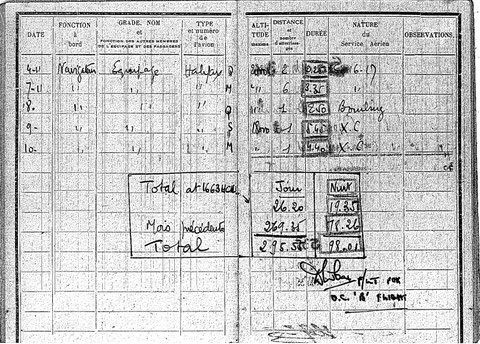 DATE FONCTION à bord GRADE, NOM et FONCTION DES AUTRES MEMBRES DE L'ÉQUIPAGE ET DES PASSAGERS TYPE et numéro de l'avion ALTITUDE maxima DISTANCE et nombre d'atterrissages DURÉE NATURE du Service Aérien OBSERVATIONS.
4-11 Navigateur Equipage Halifax 2 16-17
7-11 " " " M " 6 3.35 "
8- " " " Q " 1 Bombing
9- " " " S 1 X.C
10- " " " M " 1 X.C
Total at 1663 HCU Jour Nuit
26.20 19.35
Mois précédents 269.35 78.26
Total 295.55 98.01
F/LT FOR
O.C. "A" FLIGHT